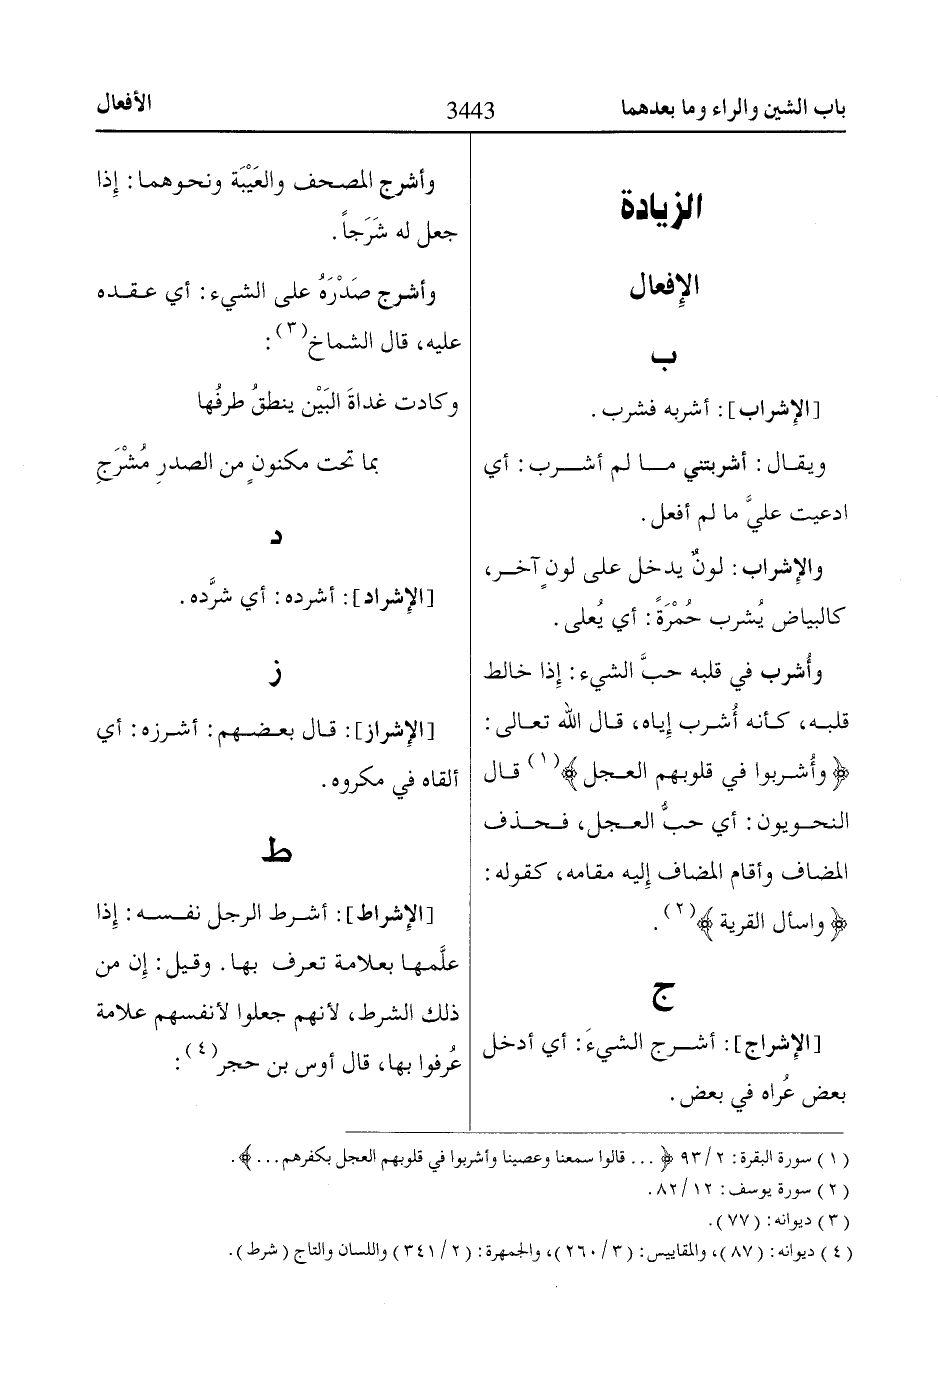 باب الشين والراء وما بعدهما
3443
الأفعال
الزيادة
الإفعال
ب
[الإشراب]: أشربه فشرب.
ويقال: أشربتني ما لم أشرب: أي
ادعيت عليَّ ما لم أفعل.
والإشراب: لونٌ يدخل على لونٍ آخر،
كالبياض يُشرب حُمْرَةً: أي يُعلى.
وأُشرب في قلبه حبَّ الشيء: إذا خالط
قلبه، كأنه أُشرب إياه، قال الله تعالى:
﴿وأُشربوا في قلوبهم العجل﴾(١) قال
النحويون: أي حبُّ العجل، فحذف
المضاف وأقام المضاف إليه مقامه، كقوله:
﴿واسأل القرية﴾(٢).
ج
[الإشراج]: أشرج الشيءَ: أي أدخل
بعض عُراه في بعض.
وأشرج المصحف والعَيْبَة ونحوهما: إذا
جعل له شَرَجاً.
وأشرج صَدْرَهُ على الشيء: أي عقده
عليه، قال الشماخ(٣):
وكادت غداةَ البَيْن ينطقُ طرفُها
بما تحت مكنونٍ من الصدرِ مُشْرَجِ
د
[الإشراد]: أشرده: أي شرَّده.
ز
[الإشراز]: قال بعضهم: أشرزه: أي
ألقاه في مكروه.
ط
[الإشراط]: أشرط الرجل نفسه: إذا
علَّمها بعلامة تعرف بها. وقيل: إن من
ذلك الشرط، لأنهم جعلوا لأنفسهم علامة
عُرفوا بها، قال أوس بن حجر(٤):
(١) سورة البقرة: ٢/ ٩٣ ﴿... قالوا سمعنا وعصينا وأشربوا في قلوبهم العجل بكفرهم...﴾.
(٢) سورة يوسف: ١٢/ ٨٢.
(٣) ديوانه: (٧٧).
(٤) ديوانه: (٨٧)، والمقاييس: (٣/ ٢٦٠)، والجمهرة: (٢/ ٣٤١) واللسان والتاج (شرط).